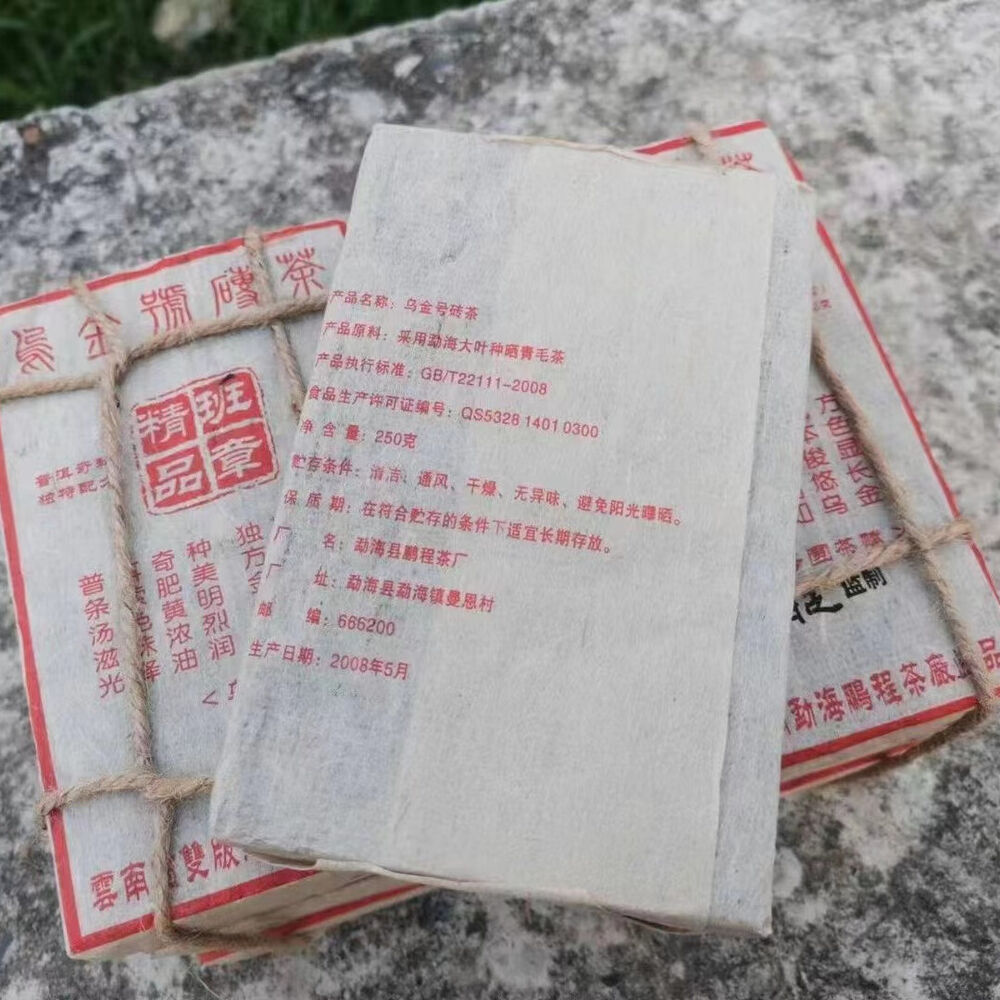 烏金號磚茶
班章
精品
普洱奇
独特配
独
方
种美明烈润
奇肥黄浓油
普条汤滋光
雲南 雙版
产品名称：乌金号砖茶
产品原料：采用勐海大叶种晒青毛茶
产品执行标准：GB/T22111-2008
食品生产许可证编号：QS5328 1401 0300
净 含 量：250克
贮存条件：清洁、通风、干燥、无异味、避免阳光曝晒。
保 质 期：在符合贮存的条件下适宜长期存放。
厂 名：勐海县鹏程茶厂
厂 址：勐海县勐海镇曼恩村
邮 编：666200
生产日期：2008年5月
茶
方色显长金
俊悠乌
监制
勐海鵬程茶廠 品